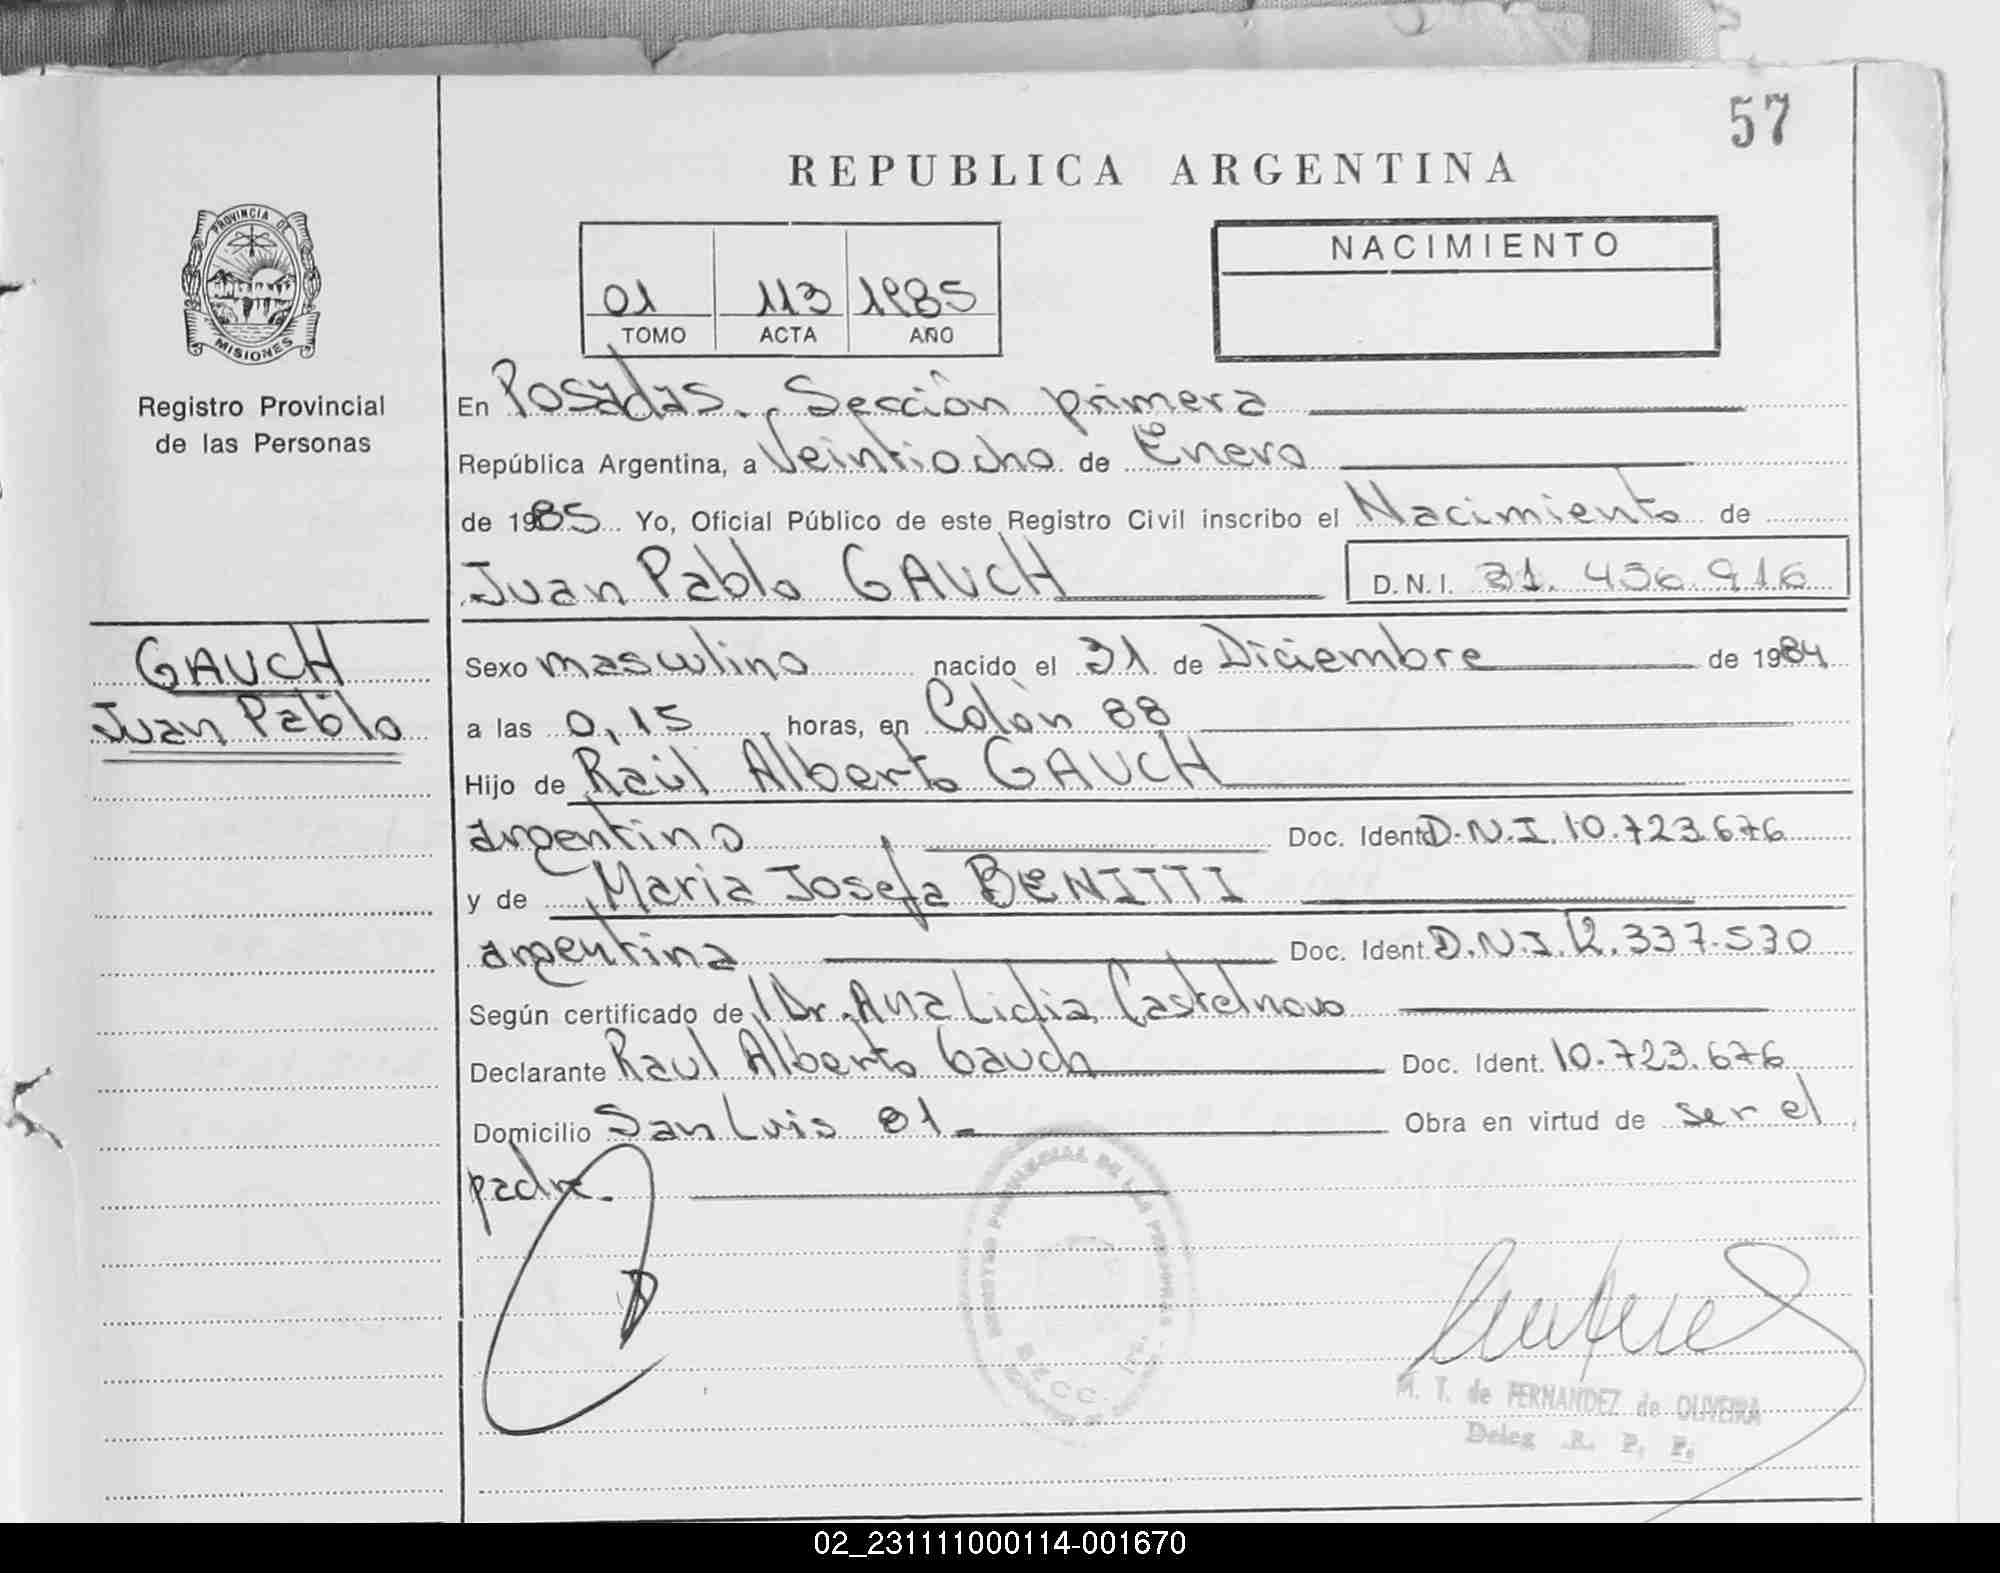 57
REPUBLICA ARGENTINA
PROVINCIA DE
MISIONES
Registro Provincial
de las Personas
01 113 1985
TOMO ACTA AÑO
NACIMIENTO
En Posadas. Sección primera
República Argentina, a Veintiocho de Enero
de 1985 Yo, Oficial Público de este Registro Civil inscribo el Nacimiento de
Juan Pablo GAUCH D.N.I. 31.456.916
GAUCH
Juan Pablo
Sexo masculino nacido el 31 de Diciembre de 1984
a las 0,15 horas, en Colón 88
Hijo de Raúl Alberto GAUCH
argentino Doc. Ident. D.N.I. 10.723.676
y de Maria Josefa BENITTI
argentina Doc. Ident. D.N.I. 12.337.530
Según certificado de Dr. Ana Lidia Castelnovo
Declarante Raul Alberto Gauch Doc. Ident. 10.723.676
Domicilio San Luis 81 Obra en virtud de ser el
padre.
M. T. de FERNANDEZ de OLIVEIRA
Deleg. R. P. P.
02_231111000114-001670